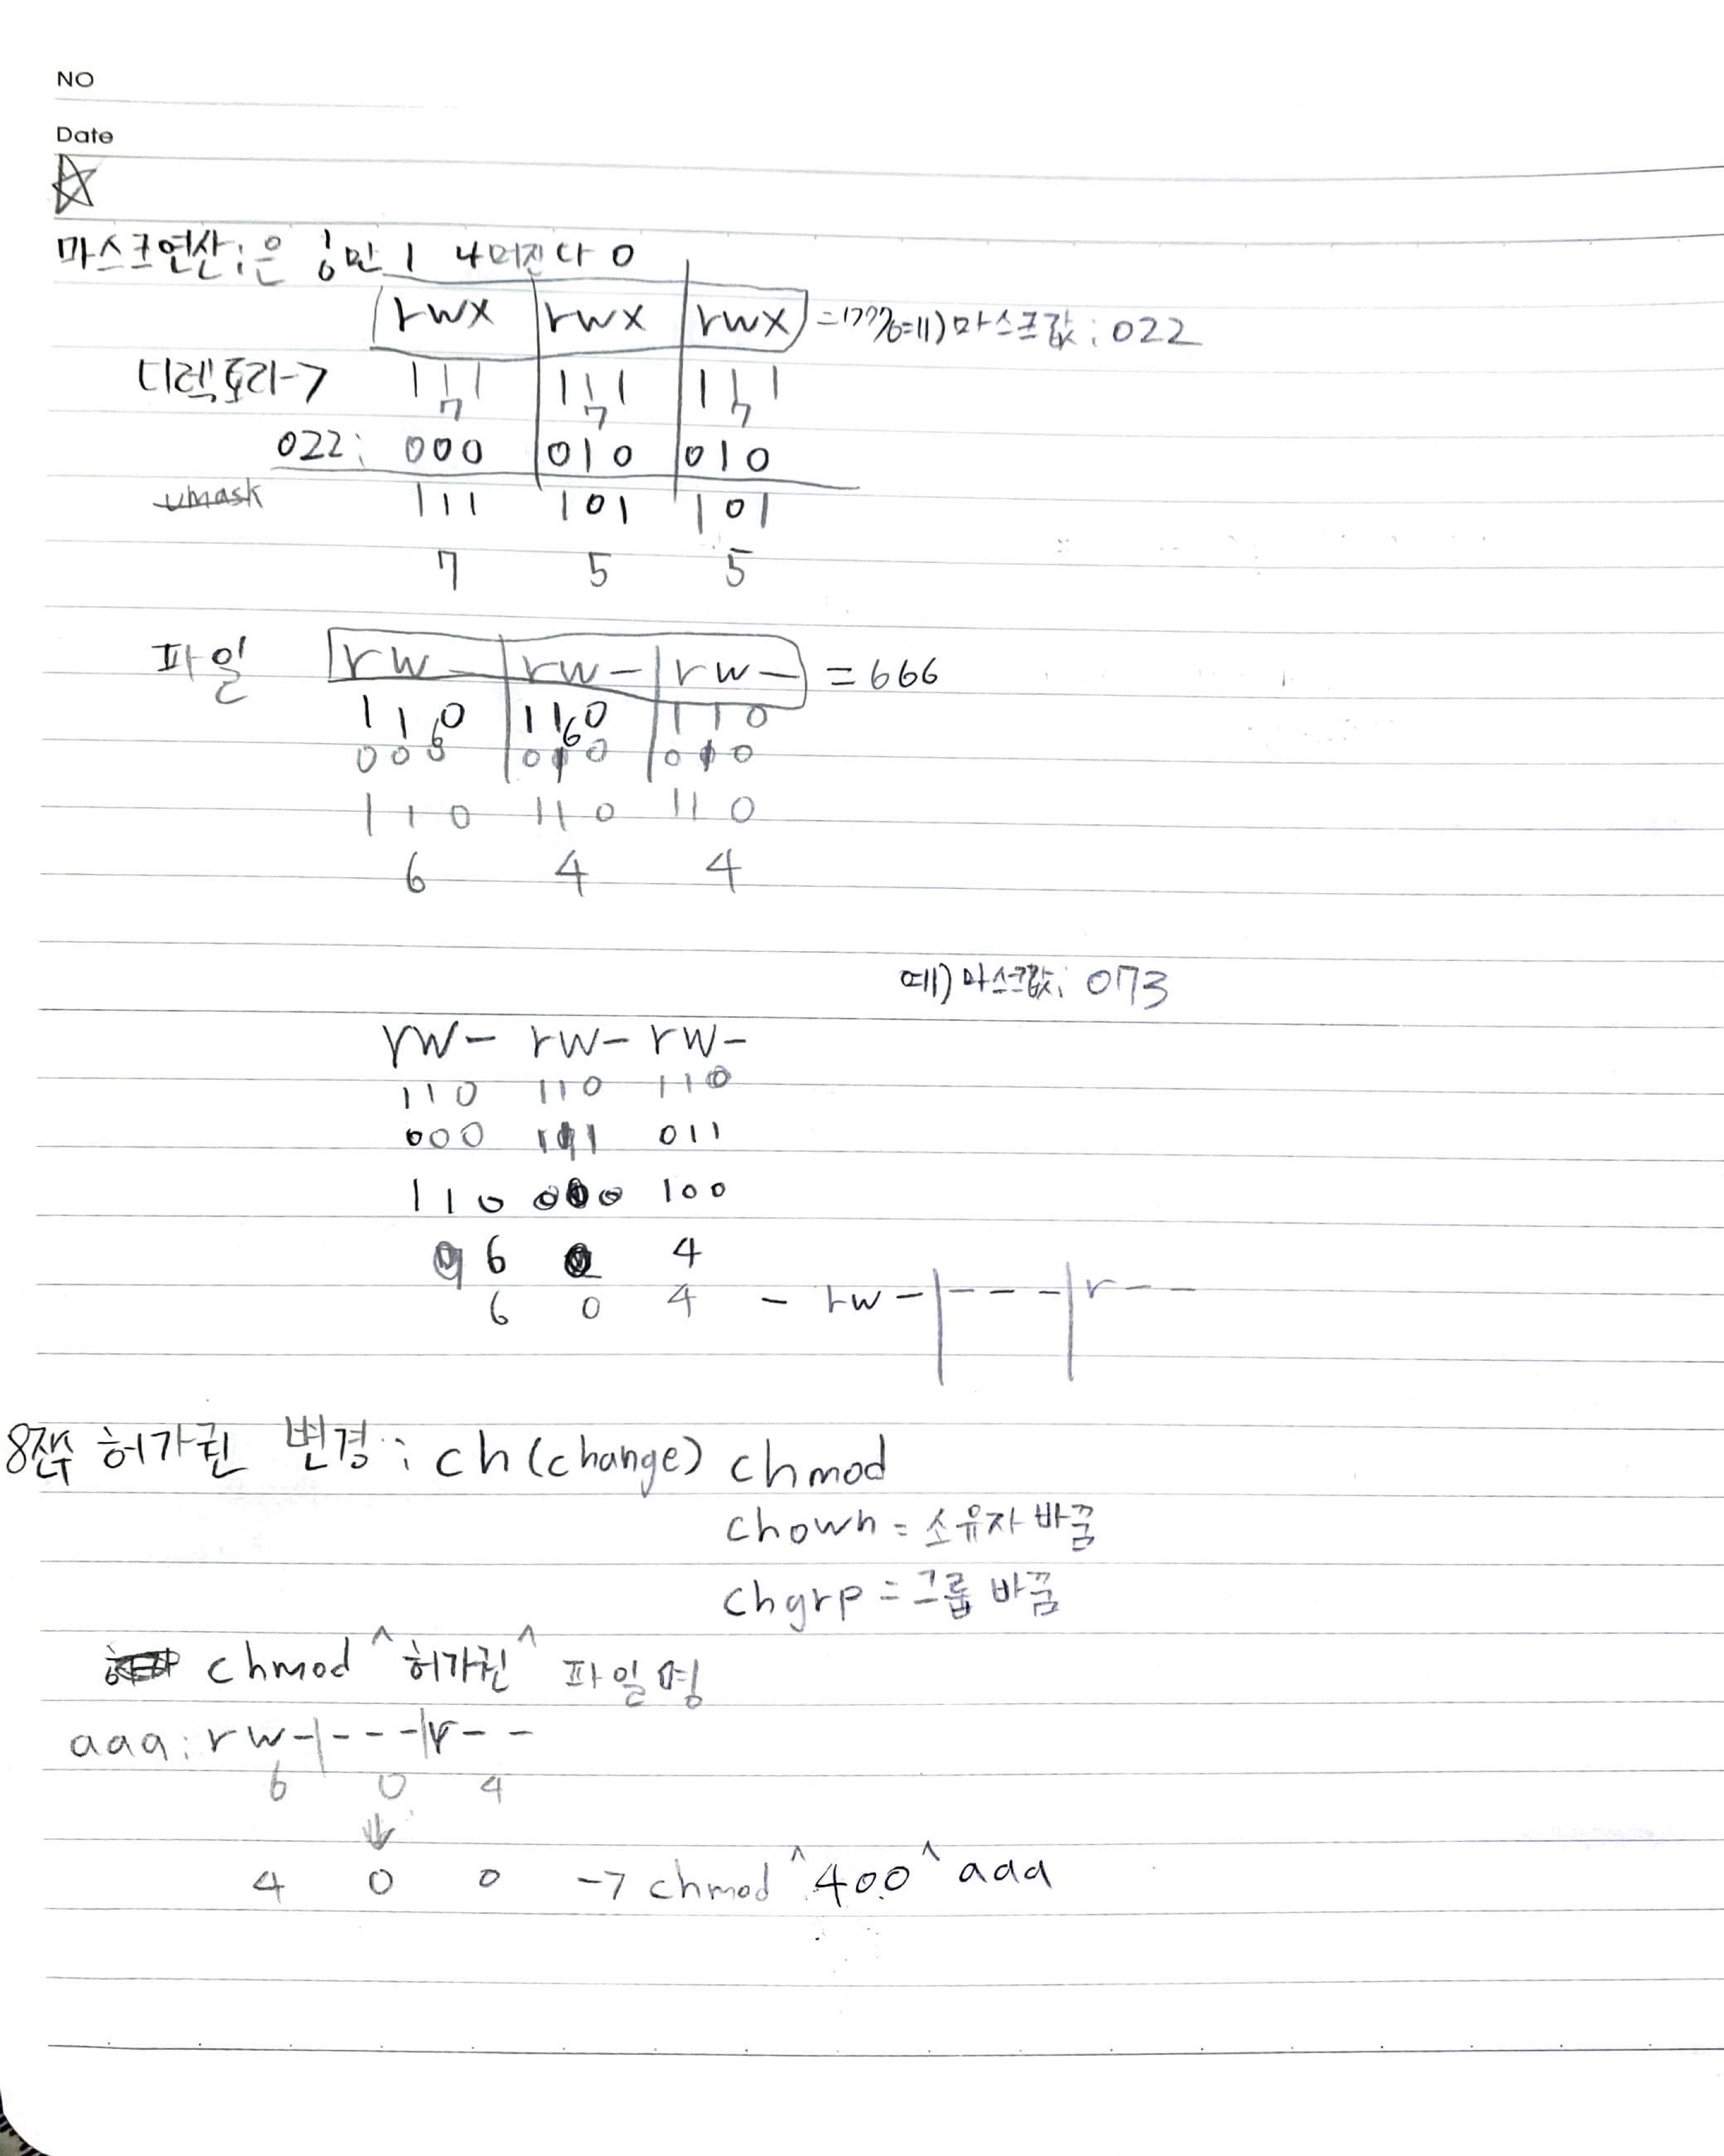 NO
Date
마스크연산;은 1 0 만 1 나머진 다 0
rwx rwx rwx =777 예) 마스크값; 022
디렉토리→ 111 111 111
7 7 7
022; 000 010 010
umask 111 101 101
7 5 5
파일 rw- rw- rw- = 666
110 110 110
6 6
000 010 010
110 110 110
6 4 4
예) 마스크값; 073
rw- rw- rw-
110 110 110
000 111 011
110 000 100
6 4
6 0 4 - rw-|---|r--
8진수 허가권 변경; ch(change) chmod
chown = 소유자 바꿈
chgrp = 그룹 바꿈
chmod ^ 허가권 ^ 파일명
aaa; rw-|---|r--
6 0 4
↓
4 0 0 → chmod ^ 400 ^ aaa